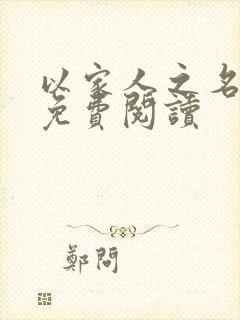 以家人之名
免費閱讀
鄭問